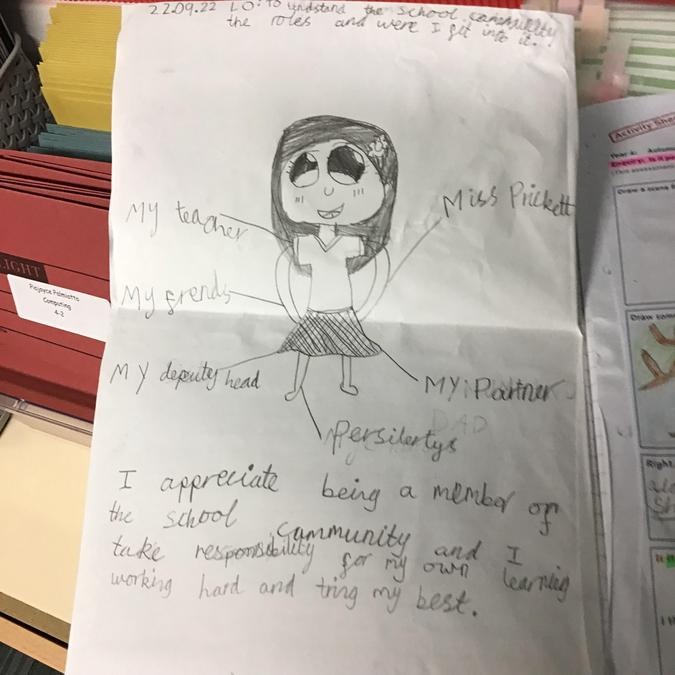 22.09.22 LO: To undstand the school cammunity
the roles and were I fit into it.
My teacher
Miss Prickett
My frends
My deputy head
My Partner
DAD
Persilertys
I appreciate being a member of
the school cammunity and I
take responsibility for my own learning
working hard and tring my best.
LIGHT
Palmiotto
Computing
4-2
Activity She
Year 4: Autum
Enquiry: Is it
(This assessment
Draw a scene
Draw
Right